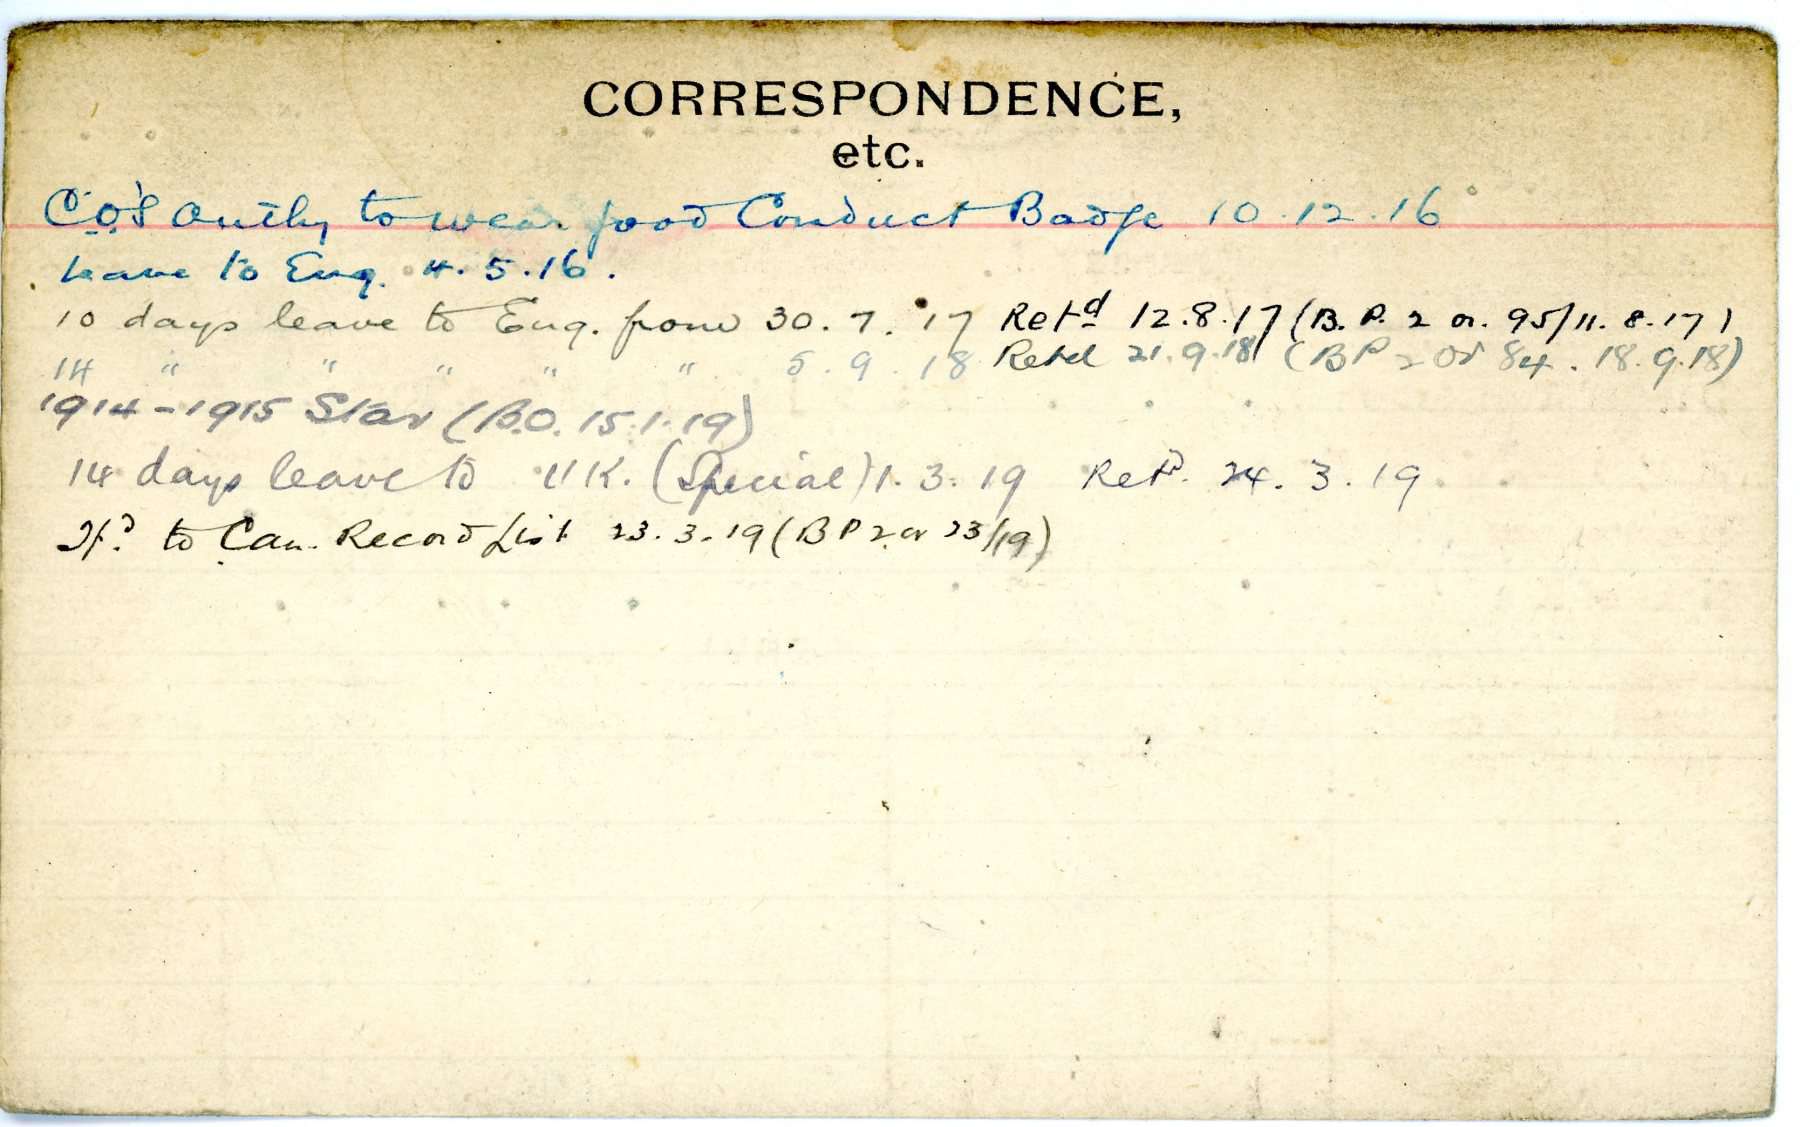 CORRESPONDENCE,
etc.
C.O's Authy to wear Good Conduct Badge 10.12.16
Leave to Eng. 4.5.16.
10 days leave to Eng. from 30.7.17 Retd 12.8.17 (B.P. 2 or. 95/11.8.17)
14 " " " " " 5.9.18 Retd 21.9.18 (BP 2 Or 84. 18.9.18)
1914-1915 Star (B.O. 15.1.19)
14 days leave to UK. (Special) 1.3.19 Retd. 24.3.19
Tfd. to Can. Record List 23.3.19 (BP 2 or 23/19)